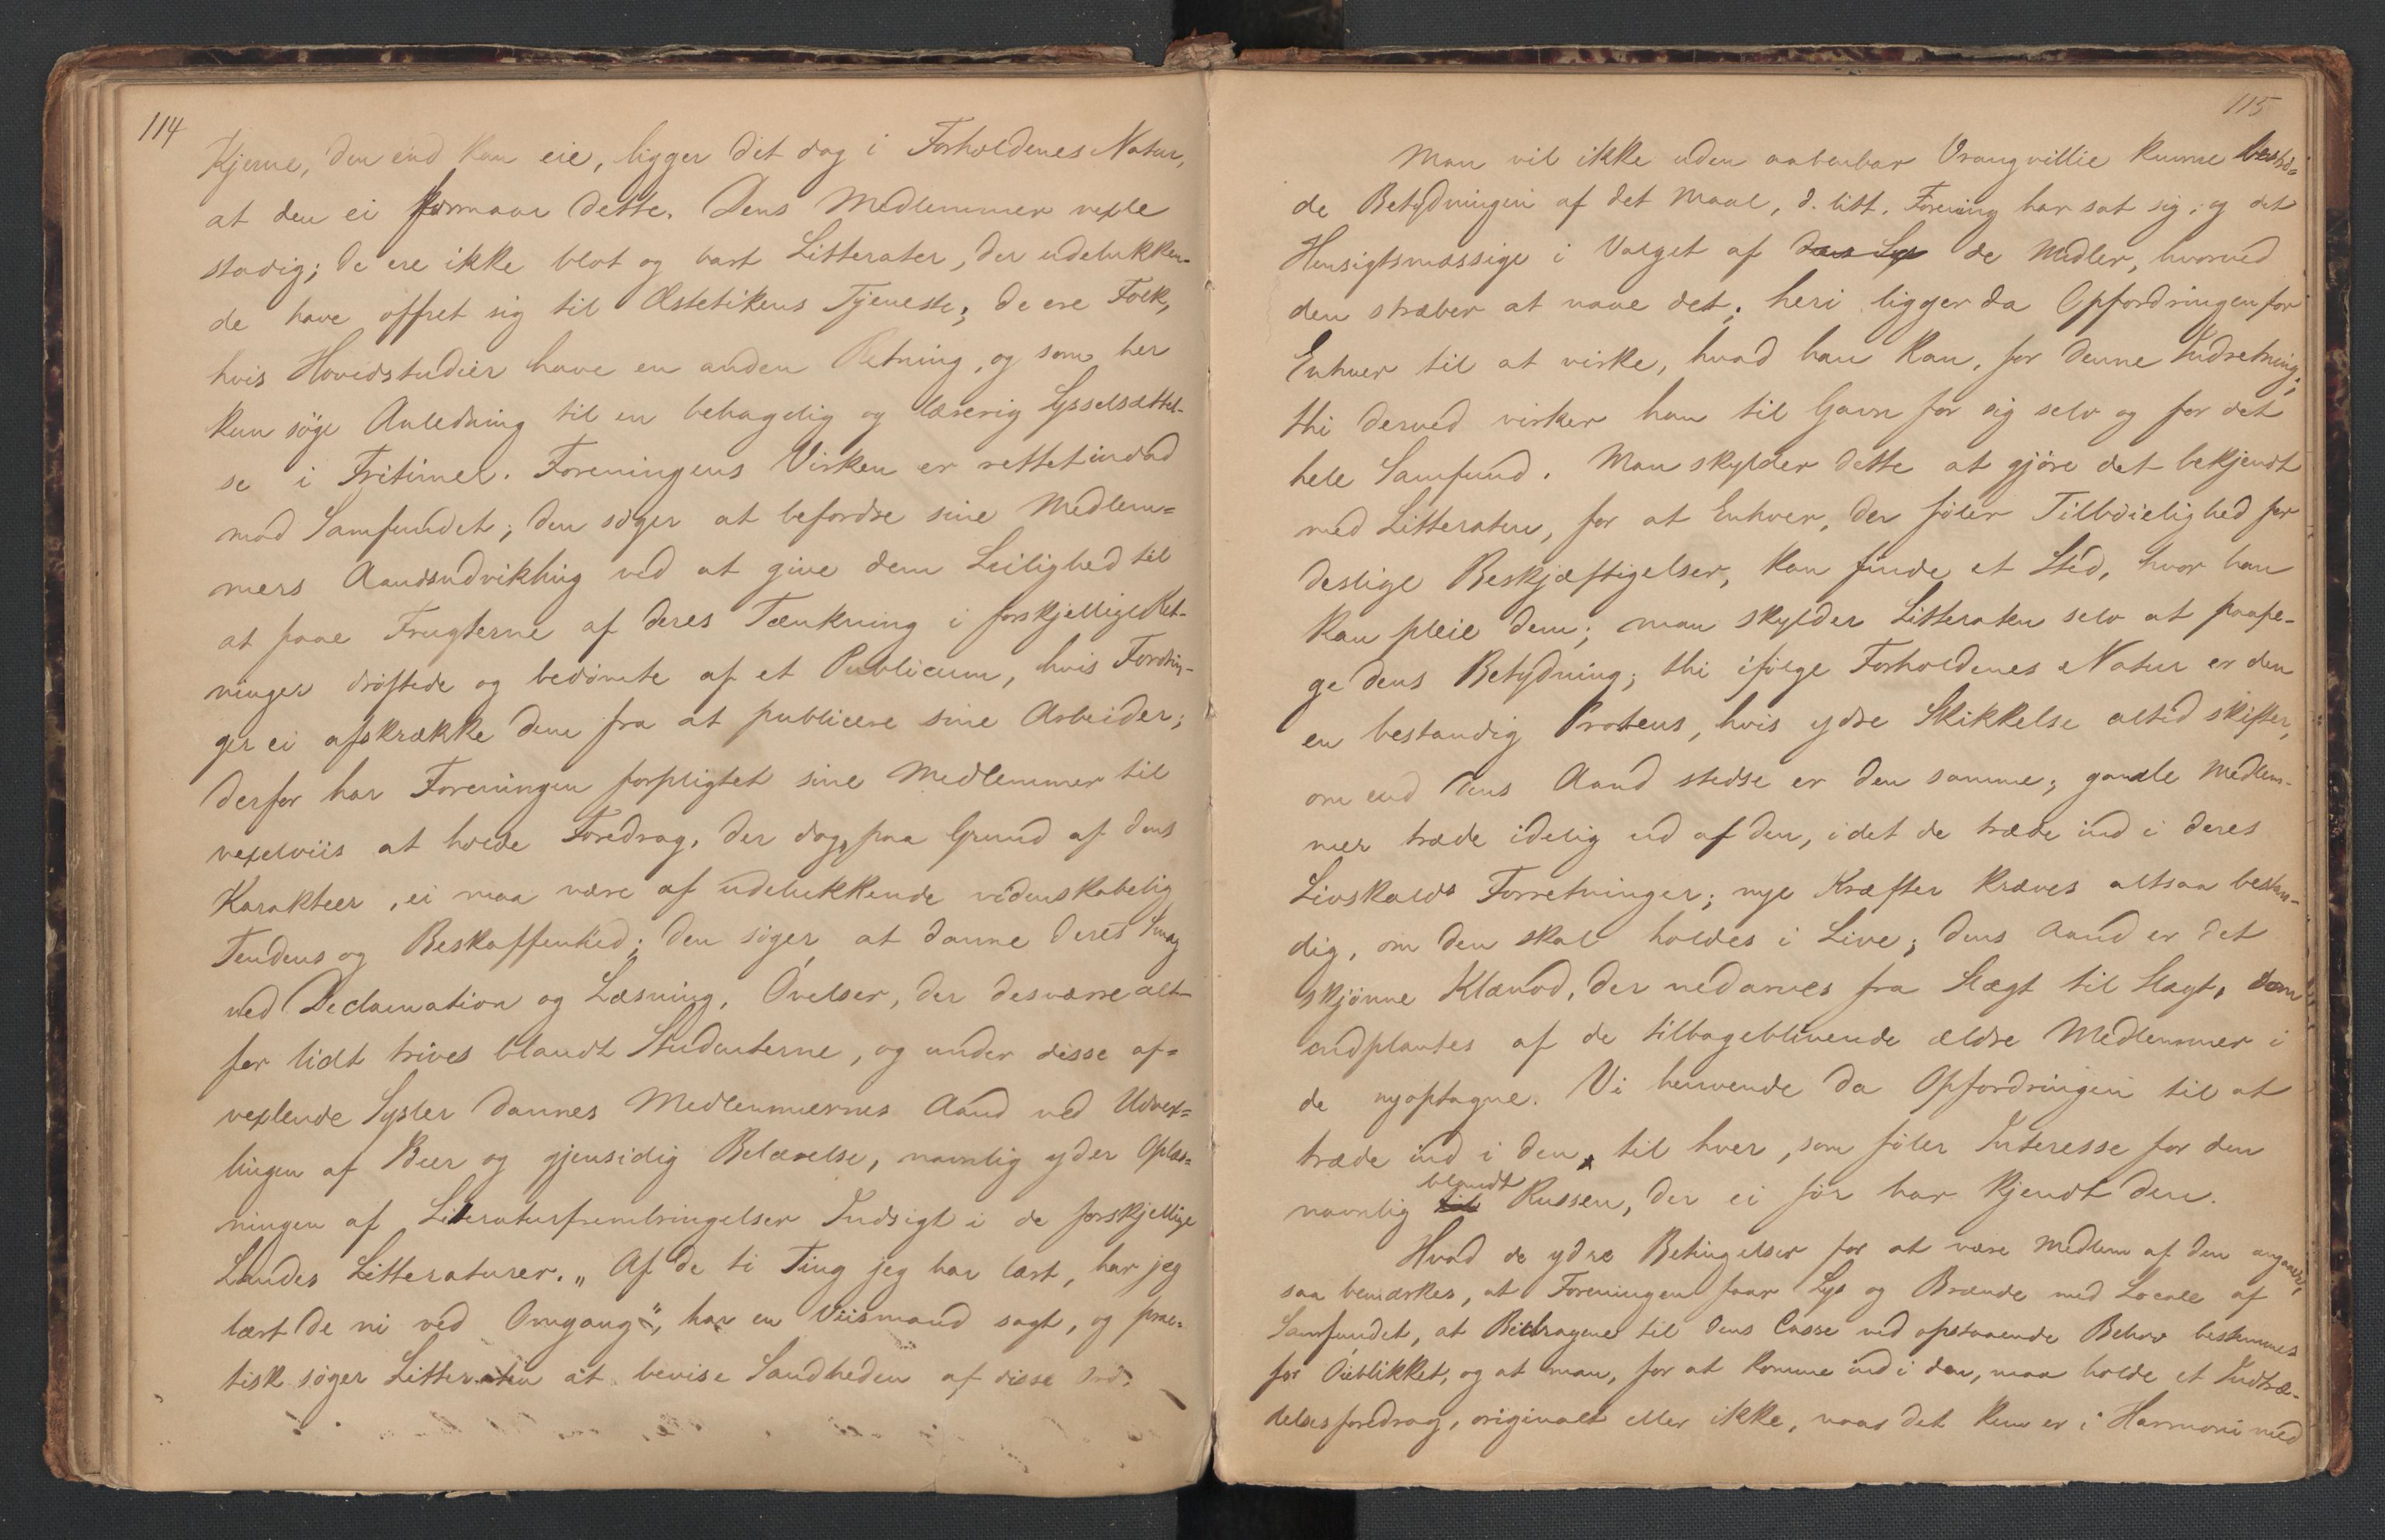 114
Kjerne, den end kan eie, ligger det dog i Forholdenes Natur,
at den ei formaar dette. Dens Medlemmer vexle
stadig; de ere ikke blot og bart Litterater, der udelukken-
de have offret sig til Æstetikens Tjeneste; de ere Folk,
hvis Hovedstudier have en anden Retning, og som her
kun søge Anledning til en behagelig og lærerig Sysselsættel-
se i Fritimer. Foreningens Virken er rettet indad
mod Samfundet; den søger at befordre sine Medlem=
mers Aandsudvikling ved at give dem Leilighed til
at faae Frugterne af deres Tænkning i forskjellige Ret-
ninger drøftede og bedømte af et Publicum, hvis Fordrin-
ger ei afskrække dem fra at publicere sine Arbeider;
derfor har Foreningen forpligtet sine Medlemmer til
vexelviis at holde Foredrag, der dog, paa Grund af dens
Karakteer, ei maa være af udelukkende videnskabelig
Tendens og Beskaffenhed; den søger at danne deres Smag
ved Declamation og Læsning, Øvelser, der desværre alt
for lidt trives blandt Studenterne, og under disse af=
vexlende Sysler dannes Medlemmernes Aand ved Udvex=
lingen af Ideer og gjensidig Belærelse, navnlig yder Oplæs=
ningen af Literaturfrembringelser Indsigt i de forskjellige
Landes Litteraturer. „Af de ti Ting jeg har lært, har jeg
lært de ni ved Omgang“, har en Viismand sagt, og prac=
tisk søger Litteraten at bevise Sandheden af disse Ord.
115
Man vil ikke uden aabenbar Vrangvillie kunne
de Betydningen af det Maal, d. litt. Forening har sat sig, og det
Hensigtsmæssige i Valget af dens Lys de Midler, hvorved
den stræber at naae det; heri ligger da Opfordringen for
Enhver til at virke, hvad han kan, for denne Indretning;
thi derved virker han til Gavn for sig selv og for det
hele Samfund. Man skylder dette at gjøre det bekjendt
med Litteraten, for at Enhver, der føler Tilbøielighed for
deslige Beskjæftigelser, kan finde et Sted, hvor han
kan pleie dem; man skylder Litteraten selv at paape-
ge dens Betydning; thi ifølge Forholdenes Natur er den
en bestandig Proteus, hvis ydre Skikkelse altid skifter,
om end dens Aand stedse er den samme; gamle Medlem-
mer træde idelig ud af den, idet de træde ind i deres
Livskalds Forretninger; nye Kræfter kræves altsaa bestan-
dig, om den skal holdes i Live; dens Aand er det
skjønne Klenod, der nedarves fra Slægt til Slægt, som
indplantes af de tilbageblivende ældre Medlemmer i
de nyoptagne. Vi henvende da Opfordringen til at
træde ind i den, til hver, som føler Interesse for den
navnlig til blandt Russen, der ei før har kjendt den.
Hvad de ydre Betingelser for at være Medlem af den angaaer,
saa bemærkes, at Foreningen faar Lys og Brænde med Locale af
Samfundet, at Bidragene til dens Casse ved opstaaende Behov bestemmes
for Øieblikket, og at man, for at komme ind i den, maa holde et Indtræ-
delsesforedrag, originalt eller ikke, naar det kun er i Harmoni med